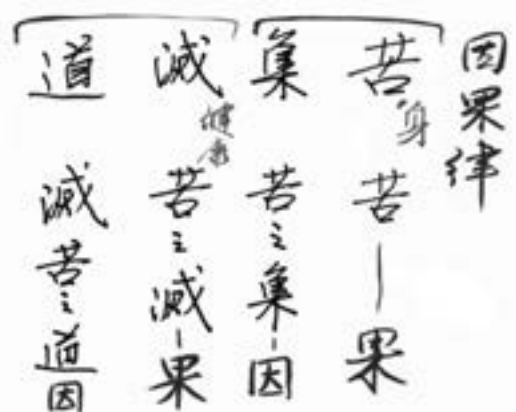 因果律
苦 身
苦—果
集
苦之集-因
滅 健康
苦之滅-果
道
滅苦之道因